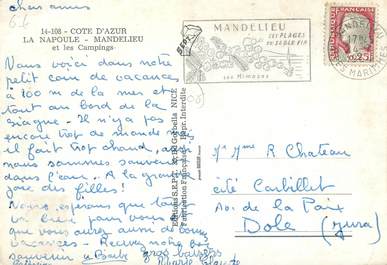 chers amis
14-108 - COTE D'AZUR
LA NAPOULE - MANDELIEU
et les Campings
Vous voici dans notre
petit coin de vacances
à 100 m de la mer et
tout au bord de la
Siagne - Il n'y a pas
encore trop de monde
il fait trop chaud, aussi
nous sommes souvent
dans l'eau. A la grande
joie des filles!
Nous espérons que tout
va bien pour vous
que vous aurez aussi de bonnes
vacances - Recevez notre bon
souvenir
gros baisers
MANDELIEU
SES PLAGES
DE SABLE FIN
ses Mimosas
SEPT
Editions S.E.P.T. Gorbella NICE
Fabrication Française Repr. Interdite
REPUBLIQUE FRANÇAISE
0,25
MANDELIEU
ALPES MARITIMES
Mr Mme R Chateau
cité Carbillet
Av. de la Paix
Dole (Jura)